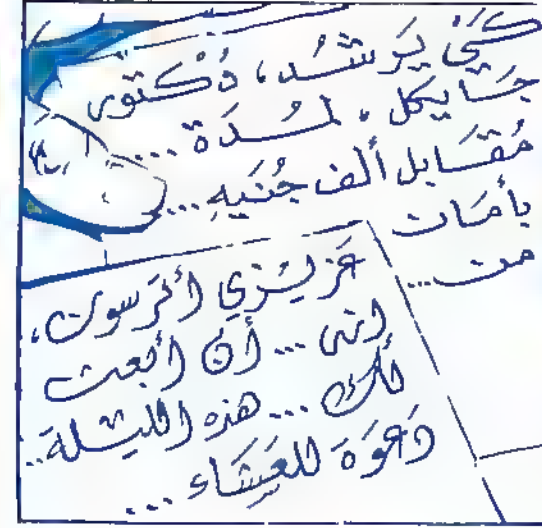 كَيْ يُرشُد، دُكْتور
جَايكل، لمُدَة ...
مُقَابل ألف جُنَيهِ ...
بأمَان
من ...
عَزيزي أتَرسون،
إنى ... أن أبعث
لك ... هذه الليلَة ..
دَعوَة للعَشَاء ...